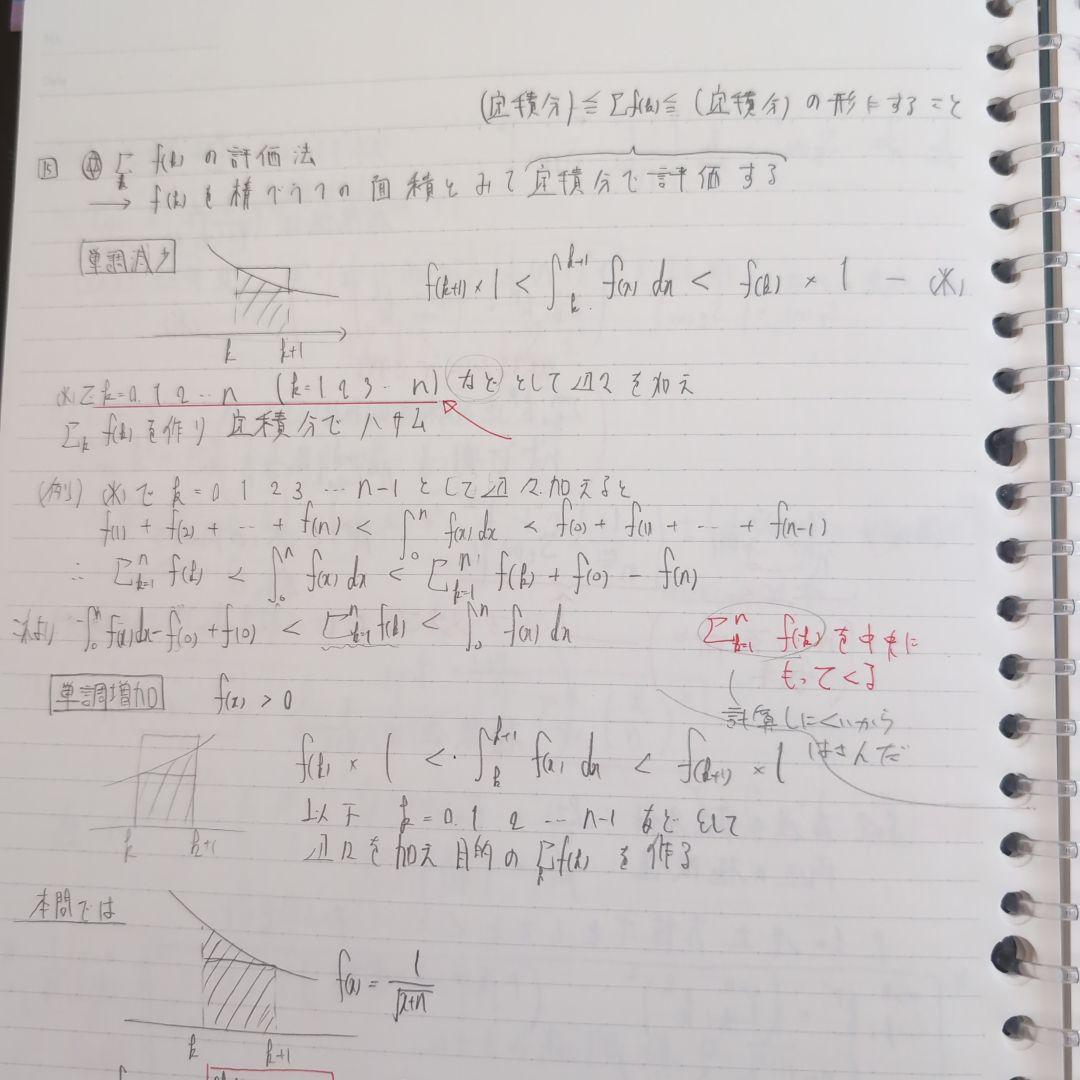 (定積分) ≦ Σf(k) ≦ (定積分) の形にすること
15 Σ_k f(k) の評価法
→ f(k) を棒グラフの面積とみて定積分で評価する
単調減少
f(k+1) × 1 < ∫_k^{k+1} f(x) dx < f(k) × 1 ─ ※1
k k+1
※で k=0. 1 2 ‥ n (k=1 2 3 ‥ n) などとして辺々を加え
Σ_k f(k) を作り 定積分でハサム
(例) ※1で k = 0 1 2 3 … n-1 として辺々加えると
f(1) + f(2) + … + f(n) < ∫_0^n f(x) dx < f(0) + f(1) + … + f(n-1)
∴ Σ_{k=1}^n f(k) < ∫_0^n f(x) dx < Σ_{k=1}^n f(k) + f(0) - f(n)
∫_0^n f(x)dx - f(0) + f(0) < Σ_{k=1}^n f(k) < ∫_0^n f(x) dx
Σ_{k=1}^n f(k) を中央に
もってくる
計算しにくいから
はさんだ
単調増加 f(x) > 0
f(k) × 1 < ∫_k^{k+1} f(x) dx < f(k+1) × 1
k k+1
以下 k = 0. 1 2 … n-1 などとして
辺々を加え目的の Σ_k f(k) を作る
本問では
f(x) = 1/√(x+n)
k k+1